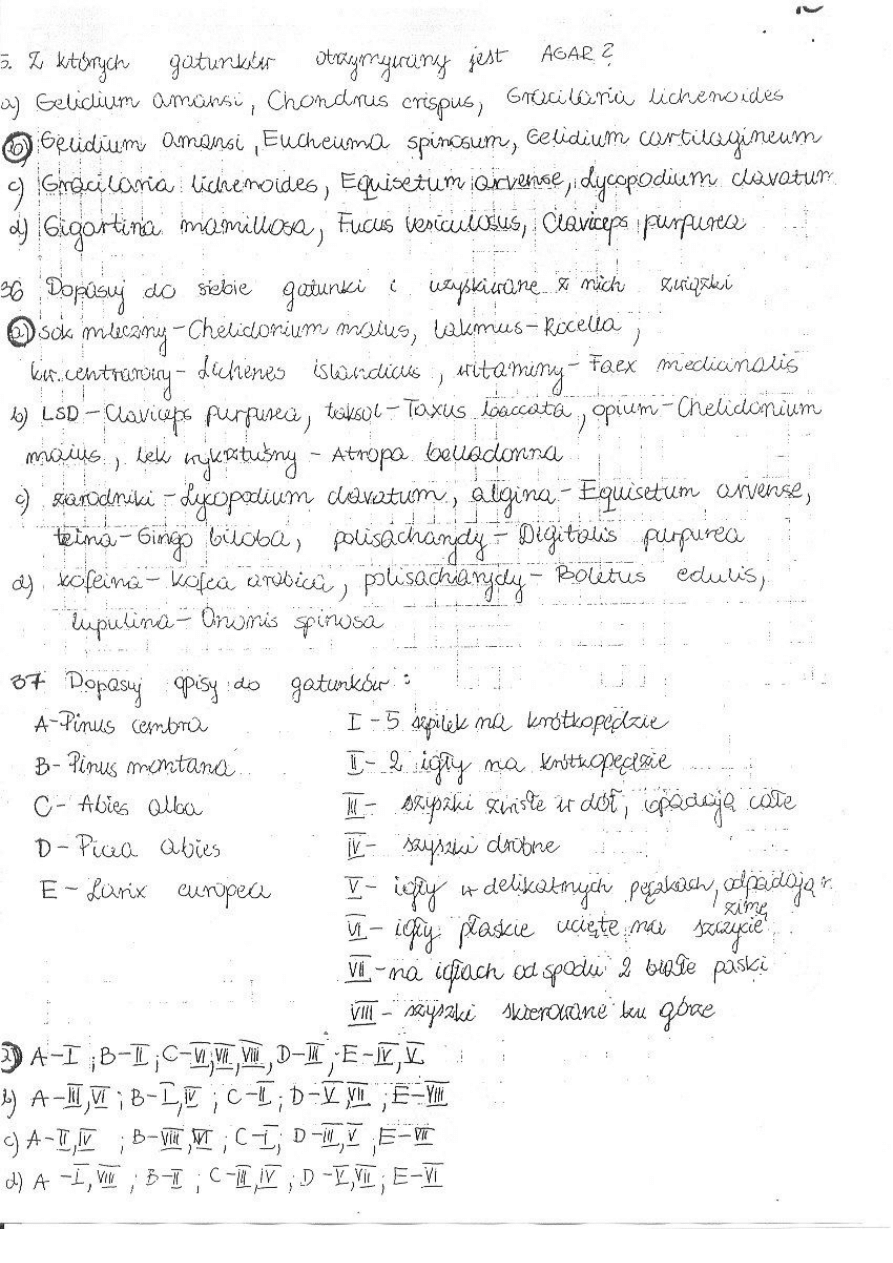 5. Z których gatunków otrzymywany jest AGAR?
a) Gelidium amansi, Chondrus crispus, Gracilaria lichenoides
b) Gelidium amansi, Eucheuma spinosum, Gelidium cartilagineum
c) Gracilaria lichenoides, Equisetum arvense, Lycopodium clavatum
d) Gigartina mamillosa, Fucus vesiculosus, Claviceps purpurea
36 Dopasuj do siebie gatunki i uzyskiwane z nich związki
a) sok mleczny - Chelidonium maius, lakmus - Rocella,
kw. centrarowy - Lichenes islandicus, witaminy - Faex medicinalis
b) LSD - Claviceps purpurea, taksol - Taxus baccata, opium - Chelidonium
maius, lek wykrztuśny - Atropa belladonna
c) zarodniki - Lycopodium clavatum, algina - Equisetum arvense,
teina - Gingo biloba, polisacharydy - Digitalis purpurea
d) kofeina - Kofea arabica, polisacharydy - Boletus edulis,
lupulina - Ononis spinosa
37 Dopasuj opisy do gatunków:
A - Pinus cembra I - 5 szpilek na krótkopędzie
B - Pinus montana II - 2 igły na krótkopędzie
C - Abies alba III - szyszki zwisłe w dół, opadają całe
D - Picea abies IV - szyszki drobne
E - Larix europea V - igły w delikatnych pęczkach, odpadają n.
zimę
VI - igły płaskie ucięte na szczycie
VII - na igłach od spodu 2 białe paski
VIII - szyszki skierowane ku górze
a) A-I ; B-II ; C-VI, VII, VIII, D-III ; E-IV, V
b) A-III, VI ; B-I, IV ; C-II ; D-V, VII ; E-VIII
c) A-II, IV ; B-VIII, VI ; C-I ; D-III, V ; E-VII
d) A-I, VIII ; B-II ; C-III, IV ; D-V, VII ; E-VI